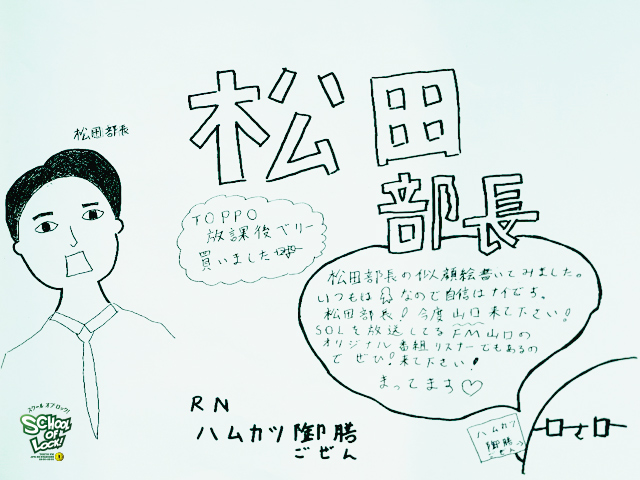 松田
部長
松田部長
TOPPO
放課後ベリー
買いました
松田部長の似顔絵書いてみました。
いつもは なので自信はナイです。
松田部長!今度山口来て下さい!
SOLを放送してるFM山口の
オリジナル番組リスナーでもあるの
で ぜひ!来て下さい!
まってます♡
RN
ハムカツ御膳
ごぜん
ハムカツ
御膳
ごぜん
スクール オブ ロック!
SCHOOL
OF
LOCK!